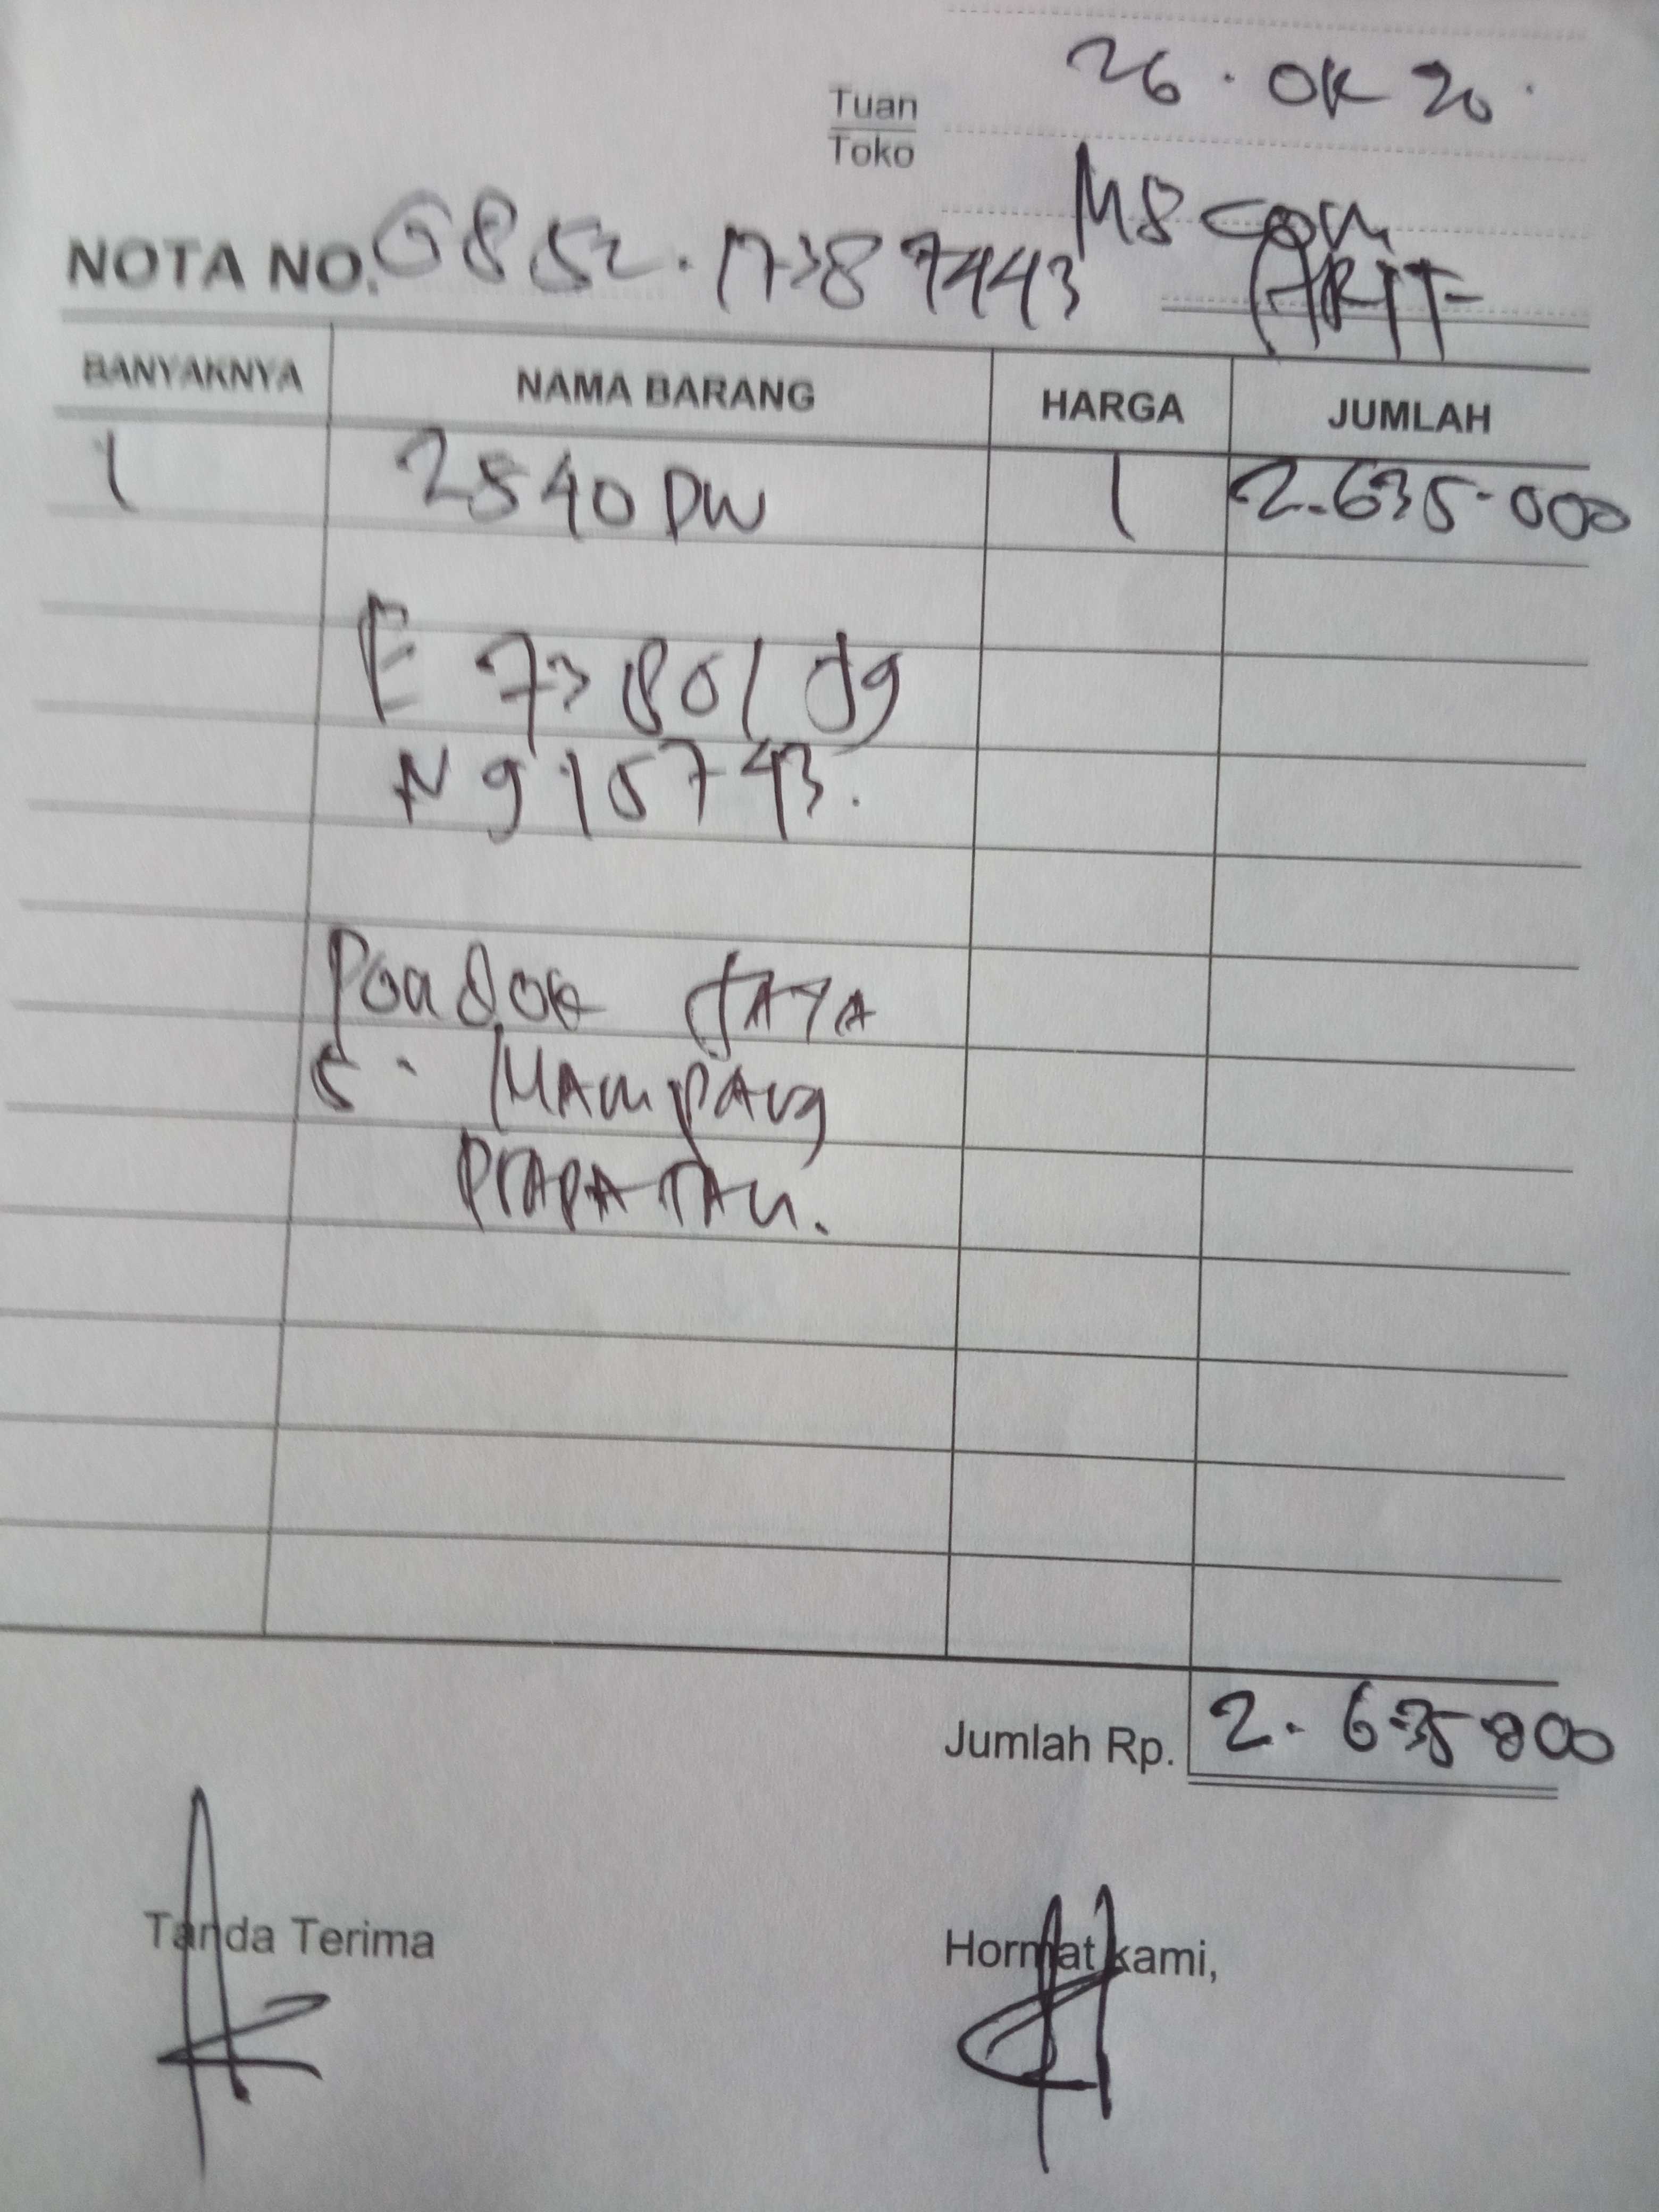 26 · OK 20 ·
Tuan
Toko
M8 com
NOTA NO. 0852 · 17387443
ARIF
BANYAKNYA NAMA BARANG HARGA JUMLAH
1 2540 DW 1 2.635.000
E 73801J9
N915743.
Pondok JAYA
5. MAMPANG
PRAPATAN.
Jumlah Rp. 2.635.000
Tanda Terima Hormat kami,